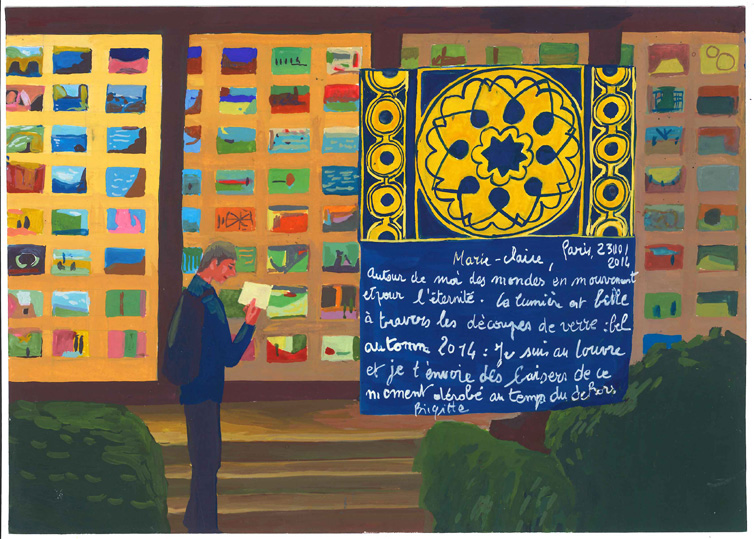 Marie-claire, Paris, 23/10/
2014
autour de moi des mondes en mouvement
et pour l'éternité. La lumière est belle
à travers les découpes de verre : bel
automne 2014 : Je suis au Louvre
et je t'envoie des baisers de ce
moment dérobé au temps du dehors.
Brigitte